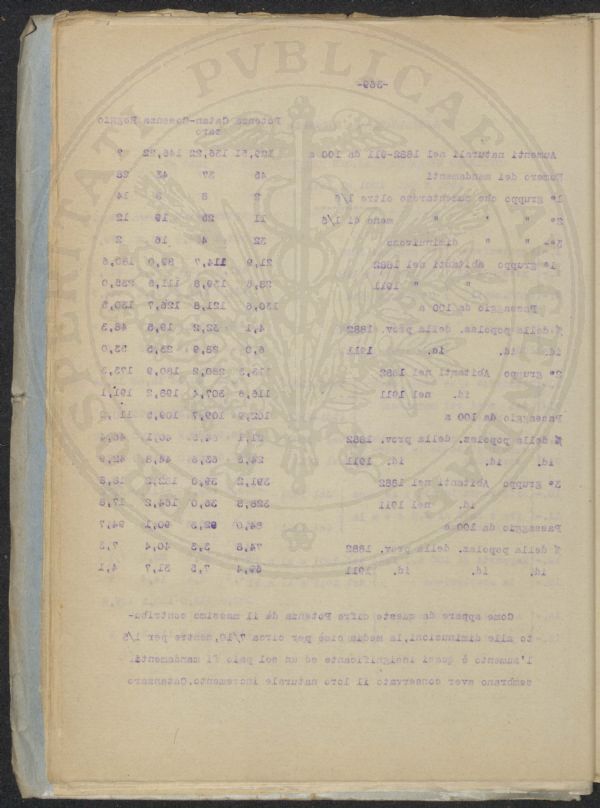 -369-
Potenza Catan- Cosenza Reggio
zaro
Aumenti naturali nel 1882-911 da 100 a 136,22 146,22 ?
Numero dei mandamenti 45 37 43 28
1° gruppo che aumentarono oltre 1/5 2 8 8 14
2° " " " meno di 1/5 11 25 19 12
3° " " diminuirono 32 4 16 2
1° gruppo abitanti nel 1882 21,9 114,7 89,0
" " 1911 139,8 111,5
Passaggio da 100 a 121,8 126,7 130,5
% della popolaz. della prov. 1882 4,1 32,2 19,5 48,3
id. id. id. 1911 6,0 28,9 23,5 53,0
2° gruppo Abitanti nel 1882 280,2 180,9 173,3
id. nel 1911 116,6 307,4 198,2 191,1
Passaggio da 100 a 102,9 109,7 109,5
% della popolaz. della prov. 1882
id. id. id. 1911 63,6 44,8 42,9
3° gruppo Abitanti nel 1882 391,2 39,0
id. nel 1911 328,8 36,0 164,2 17,8
Passaggio da 100 a 84,0 92,3 90,1 94,7
% della popolaz. della prov. 1882 74,8 3,3 40,4 7,3
id. id. id. 1911 69,4 7,5 31,7 4,1
Come appare da queste cifre Potenza dà il massimo contribu-
to alle diminuzioni, la media cioè per circa 7/10, mentre per 1/5
l'aumento è quasi insignificante ed un sol paio di mandamenti
sembrano aver conservato il loro naturale incremento. Catanzaro
PVBLICAE